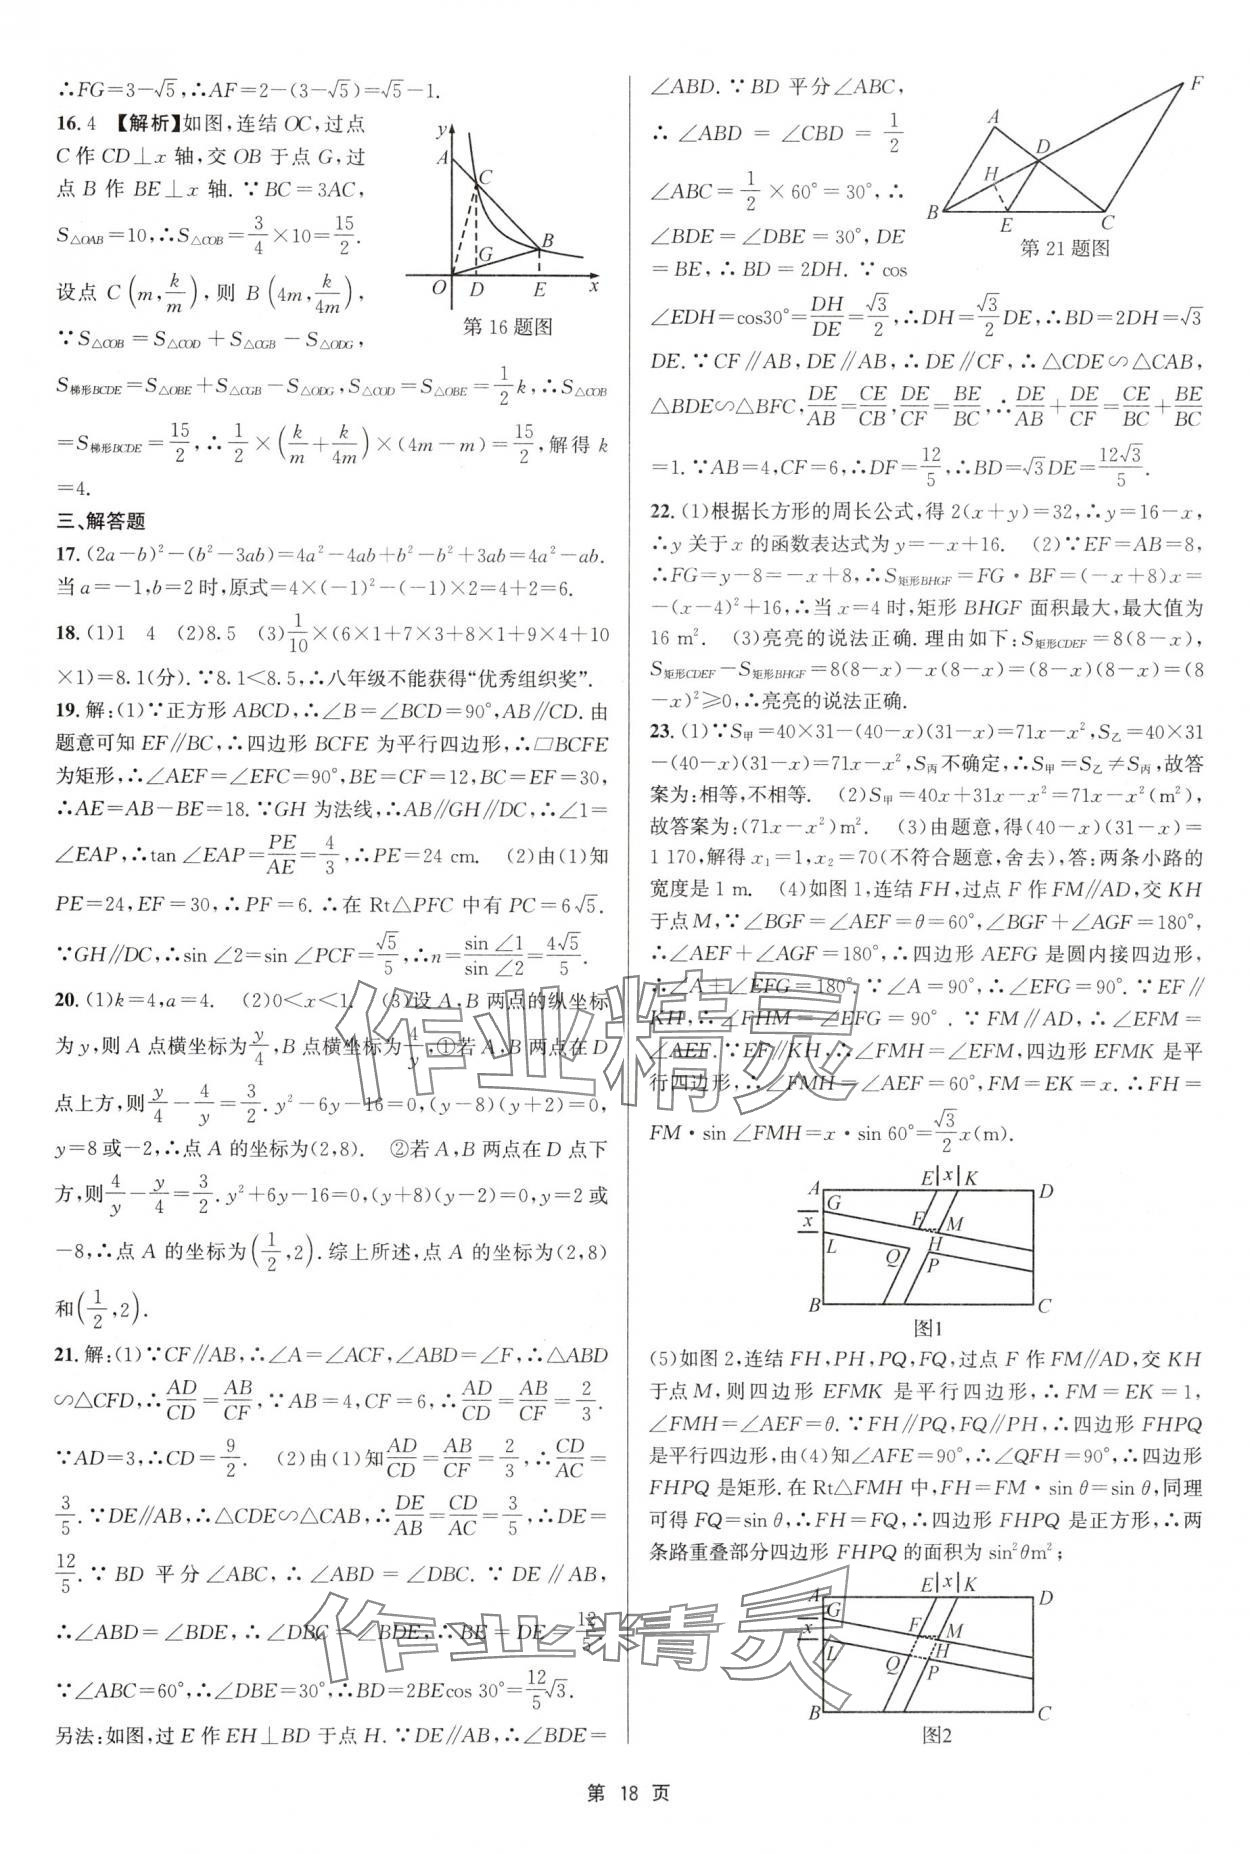 ∴FG=3-√5,∴AF=2-(3-√5)=√5-1.
16.4 【解析】如图,连结OC,过点
C作CD⊥x轴,交OB于点G,过
点B作BE⊥x轴.∵BC=3AC,
S△OAB=10,∴S△COB=3/4×10=15/2.
设点C(m,k/m),则B(4m,k/4m),
∵S△COB=S△COD+S△CGB-S△ODG,
S梯形BCDE=S△OBE+S△CGB-S△ODG,S△COD=S△OBE=1/2k,∴S△COB
=S梯形BCDE=15/2,∴1/2×(k/m+k/4m)×(4m-m)=15/2,解得k
=4.
y
A
C
G
B
O D E x
第16题图
三、解答题
17.(2a-b)²-(b²-3ab)=4a²-4ab+b²-b²+3ab=4a²-ab.
当a=-1,b=2时,原式=4×(-1)²-(-1)×2=4+2=6.
18.(1)1 4 (2)8.5 (3)1/10×(6×1+7×3+8×1+9×4+10
×1)=8.1(分).∵8.1<8.5,∴八年级不能获得“优秀组织奖”.
19.解:(1)∵正方形ABCD,∴∠B=∠BCD=90°,AB∥CD.由
题意可知EF∥BC,∴四边形BCFE为平行四边形,∴□BCFE
为矩形,∴∠AEF=∠EFC=90°,BE=CF=12,BC=EF=30,
∴AE=AB-BE=18.∵GH为法线,∴AB∥GH∥DC,∴∠1=
∠EAP,∴tan∠EAP=PE/AE=4/3,∴PE=24 cm. (2)由(1)知
PE=24,EF=30,∴PF=6.∴在Rt△PFC中有PC=6√5.
∵GH∥DC,∴sin∠2=sin∠PCF=√5/5,∴n=sin∠1/sin∠2=4√5/5.
20.(1)k=4,a=4. (2)0<x<1. (3)设A,B两点的纵坐标
为y,则A点横坐标为y/4,B点横坐标为4/y,①若A,B两点在D
点上方,则y/4-4/y=3/2.y²-6y-16=0,(y-8)(y+2)=0,
y=8或-2,∴点A的坐标为(2,8). ②若A,B两点在D点下
方,则4/y-y/4=3/2.y²+6y-16=0,(y+8)(y-2)=0,y=2或
-8,∴点A的坐标为(1/2,2).综上所述,点A的坐标为(2,8)
和(1/2,2).
21.解:(1)∵CF∥AB,∴∠A=∠ACF,∠ABD=∠F,∴△ABD
∽△CFD,∴AD/CD=AB/CF,∵AB=4,CF=6,∴AD/CD=AB/CF=2/3.
∵AD=3,∴CD=9/2. (2)由(1)知AD/CD=AB/CF=2/3,∴CD/AC=
3/5.∵DE∥AB,∴△CDE∽△CAB,∴DE/AB=CD/AC=3/5,∴DE=
12/5.∵BD平分∠ABC,∴∠ABD=∠DBC.∵DE∥AB,
∴∠ABD=∠BDE,∴∠DBC=∠BDE,∴BE=DE=12/5.
∵∠ABC=60°,∴∠DBE=30°,∴BD=2BEcos 30°=12/5√3.
另法:如图,过E作EH⊥BD于点H.∵DE∥AB,∴∠BDE=
∠ABD.∵BD平分∠ABC,
∴∠ABD=∠CBD=1/2
∠ABC=1/2×60°=30°,∴
∠BDE=∠DBE=30°,DE
=BE,∴BD=2DH.∵cos
F
A
D
H
B E C
第21题图
∠EDH=cos30°=DH/DE=√3/2,∴DH=√3/2DE,∴BD=2DH=√3
DE.∵CF∥AB,DE∥AB,∴DE∥CF,∴△CDE∽△CAB,
△BDE∽△BFC,DE/AB=CE/CB,DE/CF=BE/BC,∴DE/AB+DE/CF=CE/BC+BE/BC
=1.∵AB=4,CF=6,∴DF=12/5,∴BD=√3DE=12√3/5.
22.(1)根据长方形的周长公式,得2(x+y)=32,∴y=16-x,
∴y关于x的函数表达式为y=-x+16. (2)∵EF=AB=8,
∴FG=y-8=-x+8,∴S矩形BHGF=FG·BF=(-x+8)x=
-(x-4)²+16,∴当x=4时,矩形BHGF面积最大,最大值为
16 m². (3)亮亮的说法正确.理由如下:S矩形CDEF=8(8-x),
S矩形CDEF-S矩形BHGF=8(8-x)-x(8-x)=(8-x)(8-x)=(8
-x)²≥0,∴亮亮的说法正确.
23.(1)∵S甲=40×31-(40-x)(31-x)=71x-x²,S乙=40×31
-(40-x)(31-x)=71x-x²,S丙不确定,∴S甲=S乙≠S丙,故答
案为:相等,不相等. (2)S甲=40x+31x-x²=71x-x²(m²),
故答案为:(71x-x²)m². (3)由题意,得(40-x)(31-x)=
1 170,解得x₁=1,x₂=70(不符合题意,舍去),答:两条小路的
宽度是1 m. (4)如图1,连结FH,过点F作FM∥AD,交KH
于点M,∵∠BGF=∠AEF=θ=60°,∠BGF+∠AGF=180°,
∴∠AEF+∠AGF=180°,∴四边形AEFG是圆内接四边形,
∴∠A+∠EFG=180°.∵∠A=90°,∴∠EFG=90°.∵EF∥
KH,∴∠FHM=∠EFG=90°.∵FM∥AD,∴∠EFM=
∠AEF.∵EF∥KH,∴∠FMH=∠EFM,四边形EFMK是平
行四边形,∴∠FMH=∠AEF=60°,FM=EK=x.∴FH=
FM·sin∠FMH=x·sin 60°=√3/2x(m).
A E x K D
G
x
F M
L
H
Q P
B C
图1
(5)如图2,连结FH,PH,PQ,FQ,过点F作FM∥AD,交KH
于点M,则四边形EFMK是平行四边形,∴FM=EK=1,
∠FMH=∠AEF=θ.∵FH∥PQ,FQ∥PH,∴四边形FHPQ
是平行四边形,由(4)知∠AFE=90°,∴∠QFH=90°,∴四边形
FHPQ是矩形.在Rt△FMH中,FH=FM·sin θ=sin θ,同理
可得FQ=sin θ,∴FH=FQ,∴四边形FHPQ是正方形,∴两
条路重叠部分四边形FHPQ的面积为sin²θm²;
A E x K D
G
x
F M
L
H
Q P
B C
图2
作业精灵
作业精灵
第 18 页